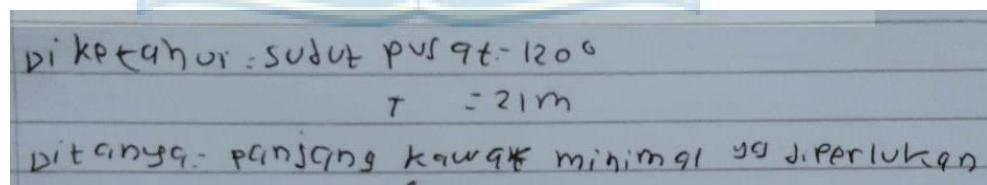 Diketahui : sudut pusat = 120°
r = 21 m
Ditanya = panjang kawat minimal yg diperlukan